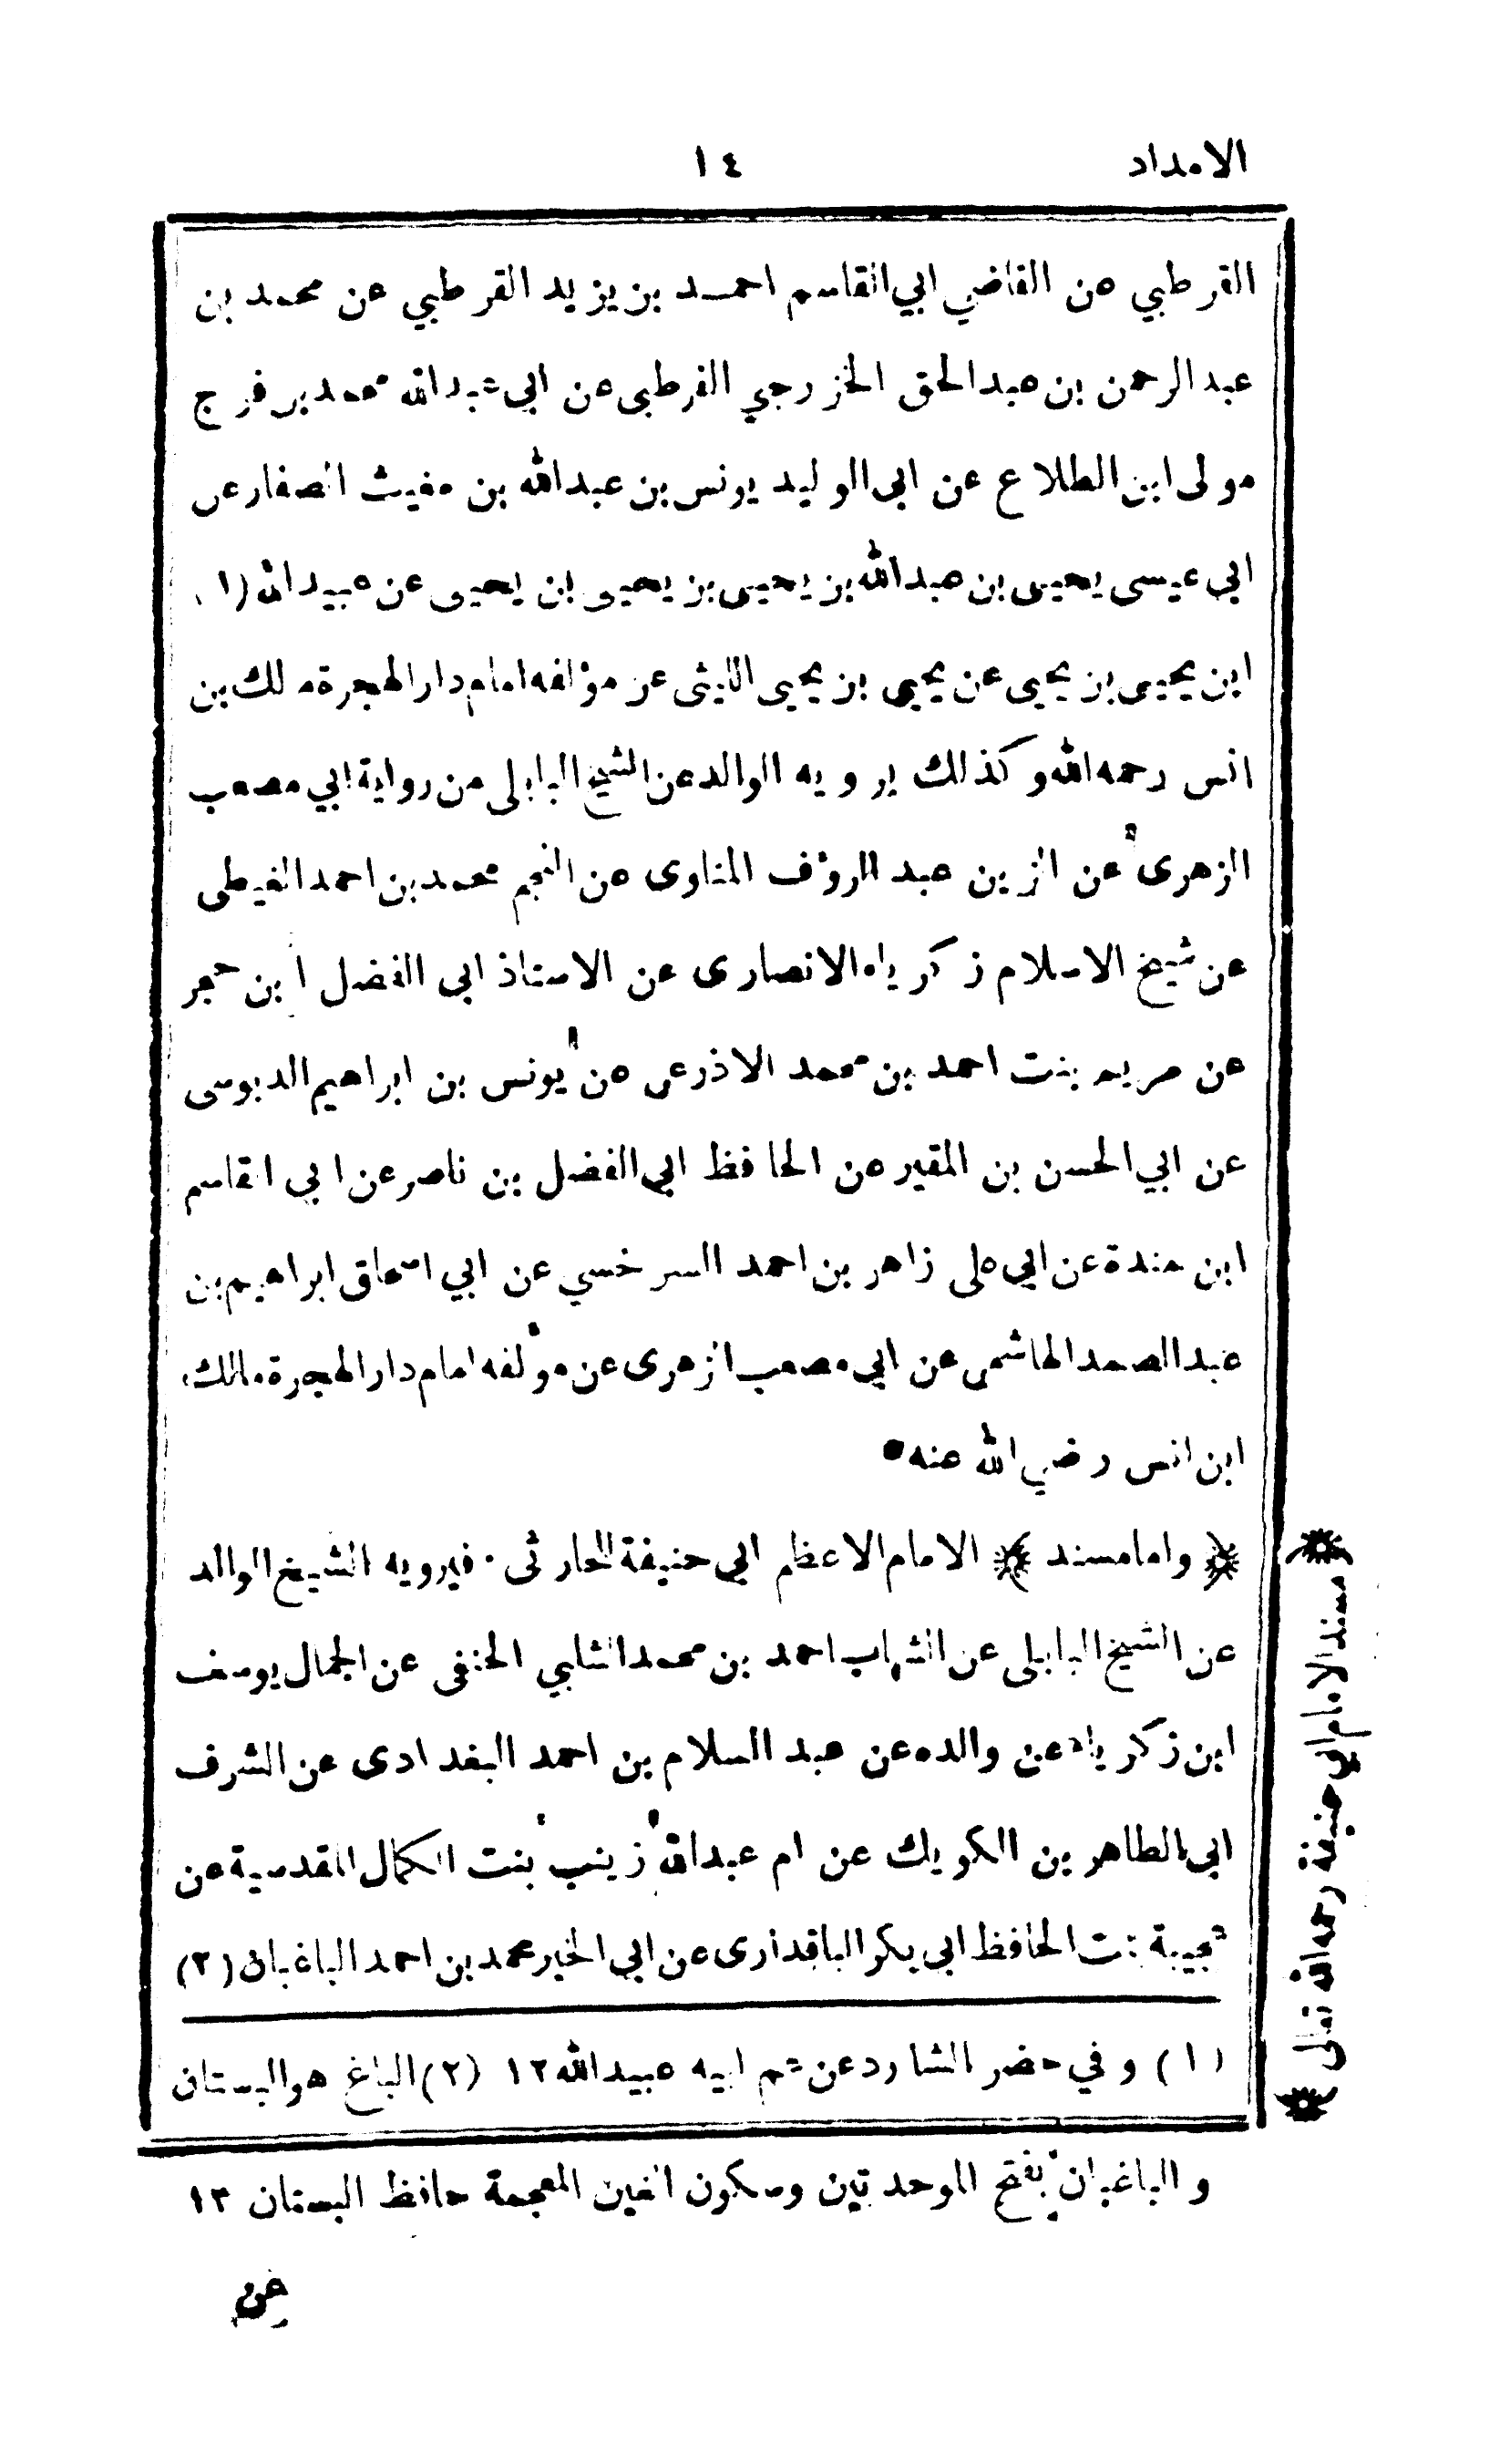 الامداد
١٤
القرطبي عن القاضي ابي القاسم احمد بن يزيد القرطبي عن محمد بن
عبد الرحمن بن عبد الحق الخزرجي القرطبى عن ابى عبد الله محمد بن فرج
مولى ابن الطلاع عن ابى الوليد يونس بن عبدالله بن مغيث الصفار عن
ابي عيسى يحيى بن عبدالله بن يحيى بن يحيى ابن يحيى عن عبيد الله (١)
ابن يحيى بن يحيى عن يحيى بن يحيى الليثى عن مؤلفه امام دار الهجرة مالك بن
انس رحمه الله وكذلك يرويه الوالد عن الشيخ البابلى من رواية ابي مصعب
الزهرى عن الزين عبد الرؤف المناوى عن النجم محمد بن احمد الغيطى
عن شيخ الاسلام زكرياء الانصارى عن الاستاذ ابى الفضل ابن حجر
عن مريم بنت احمد بن محمد الاذرعى عن يونس بن ابراهيم الدبوسى
عن ابي الحسن بن المقير عن الحافظ ابي الفضل بن ناصر عن ابي القاسم
ابن مندة عن ابي على زاهر بن احمد السرخسي عن ابي اسحاق ابراهيم بن
عبد الصمد الهاشمى عن ابي مصعب الزهرى عن مؤلفه امام دار الهجرة مالك
ابن انس رضي الله عنه •
﴿ واما مسند ﴾ الامام الاعظم ابي حنيفة للحارثى • فيرويه الشيخ الوالد
عن الشيخ البابلى عن الشهاب احمد بن محمد الشلبي الحنفى عن الجمال يوسف
ابن زكرياء عن والده عن عبد السلام بن احمد البغدادى عن الشرف
ابى الطاهر بن الكويك عن ام عبد الله زينب بنت الكمال المقدسية عن
عجيبة بنت الحافظ ابى بكر الباقدارى عن ابي الخير محمد بن احمد الباغبان (٢)
﴿ مسند الامام ابي حنيفة رحمه الله تعالى ﴾
(١) وفي حضر الشارد عن عم ابيه عبيد الله ١٢ (٢) الباغ هو البستان
و الباغبان بفتح الموحدتين وسكون الغين المعجمة حافظ البستان ١٢
عن